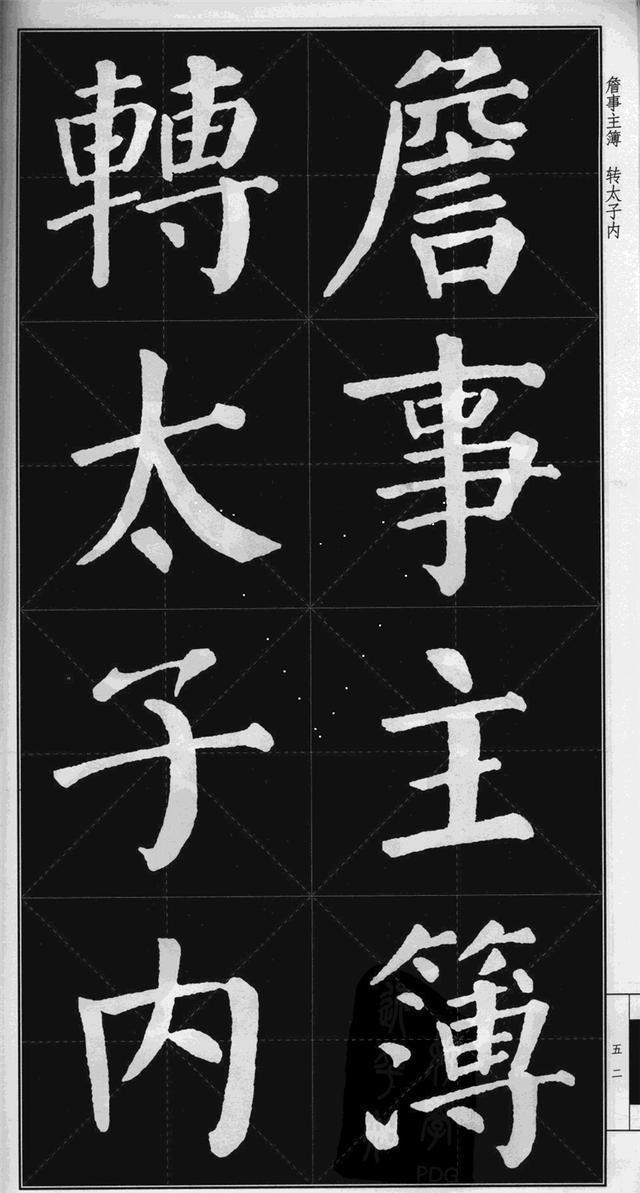 詹事主簿 转太子内
詹事主簿
轉太子内
五二
PDG